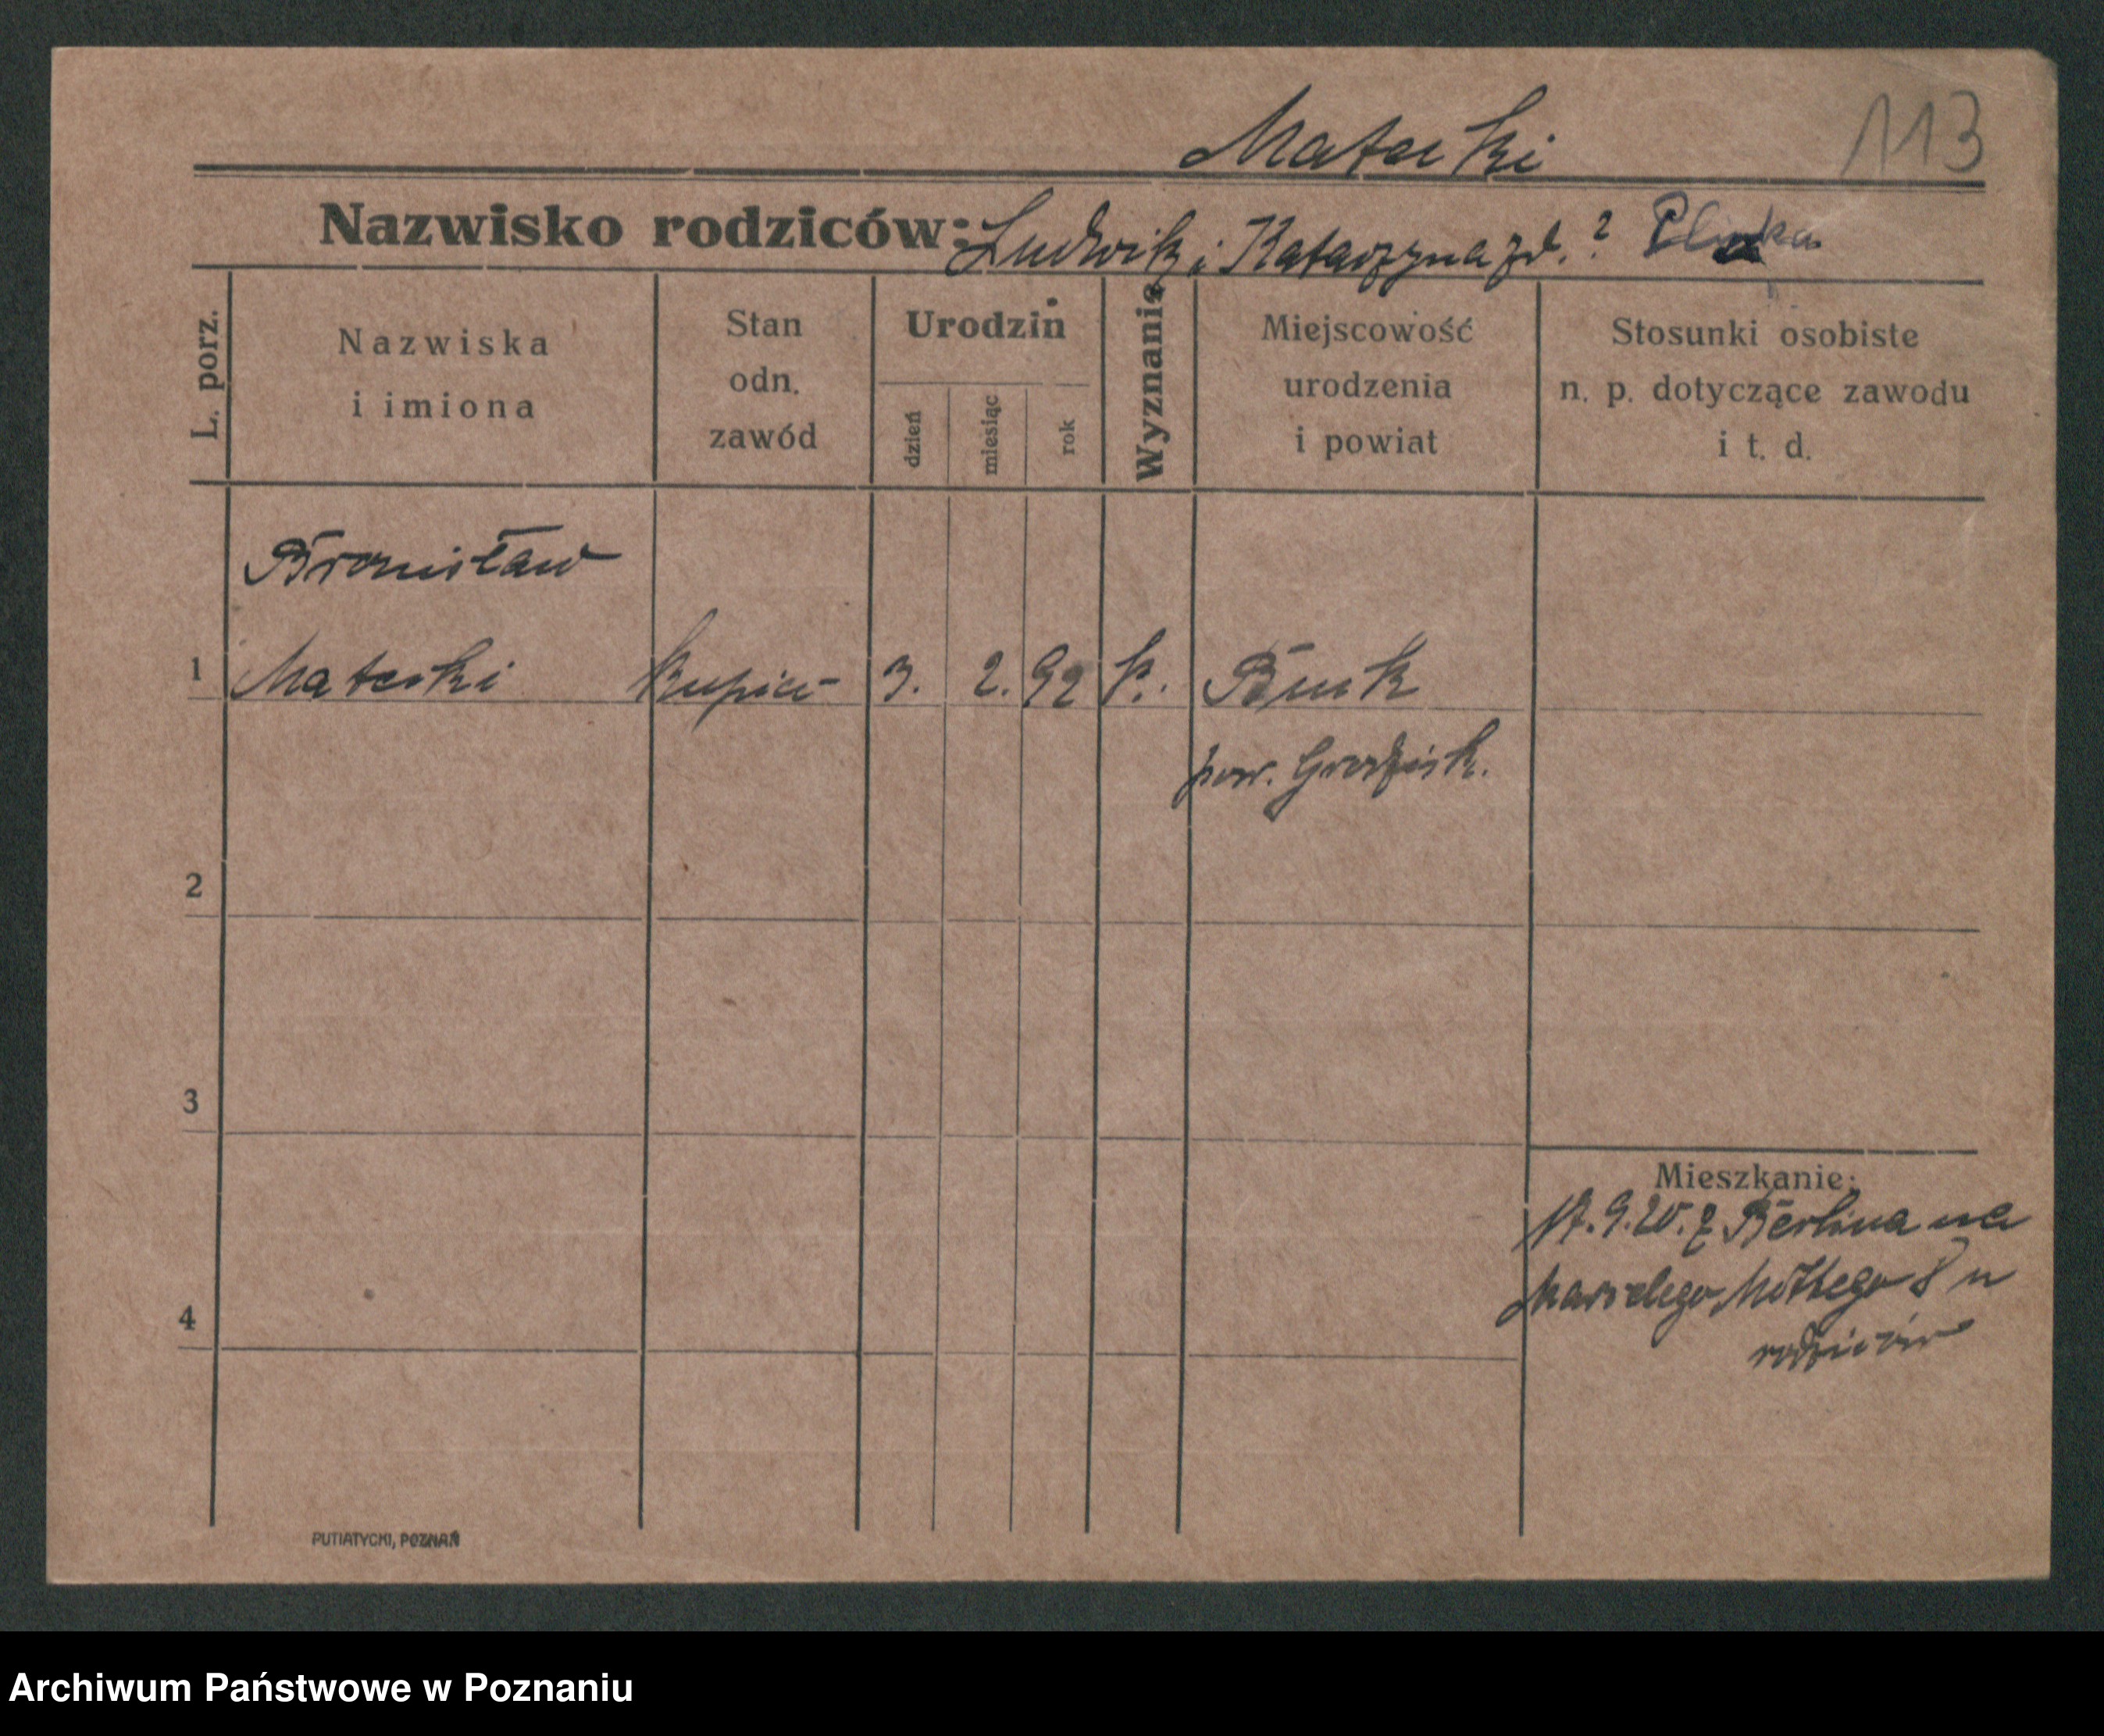 Matecki
113
Nazwisko rodziców: Ludwik i Katarzyna zd. ?
L. porz.
Nazwiska
i imiona
Stan
odn.
zawód
Urodzin
dzień
miesiąc
rok
Wyznanie
Miejscowość
urodzenia
i powiat
Stosunki osobiste
n. p. dotyczące zawodu
i t. d.
Bronisław
1 Matecki kupiec 3. 2. 92 k. Buk
pow. Grodzisk.
2
3
4
Mieszkanie:
17.9.20. z Berlina na
Marcelego Mottego 8 u
rodziców
PUTIATYCKI, POZNAŃ
Archiwum Państwowe w Poznaniu